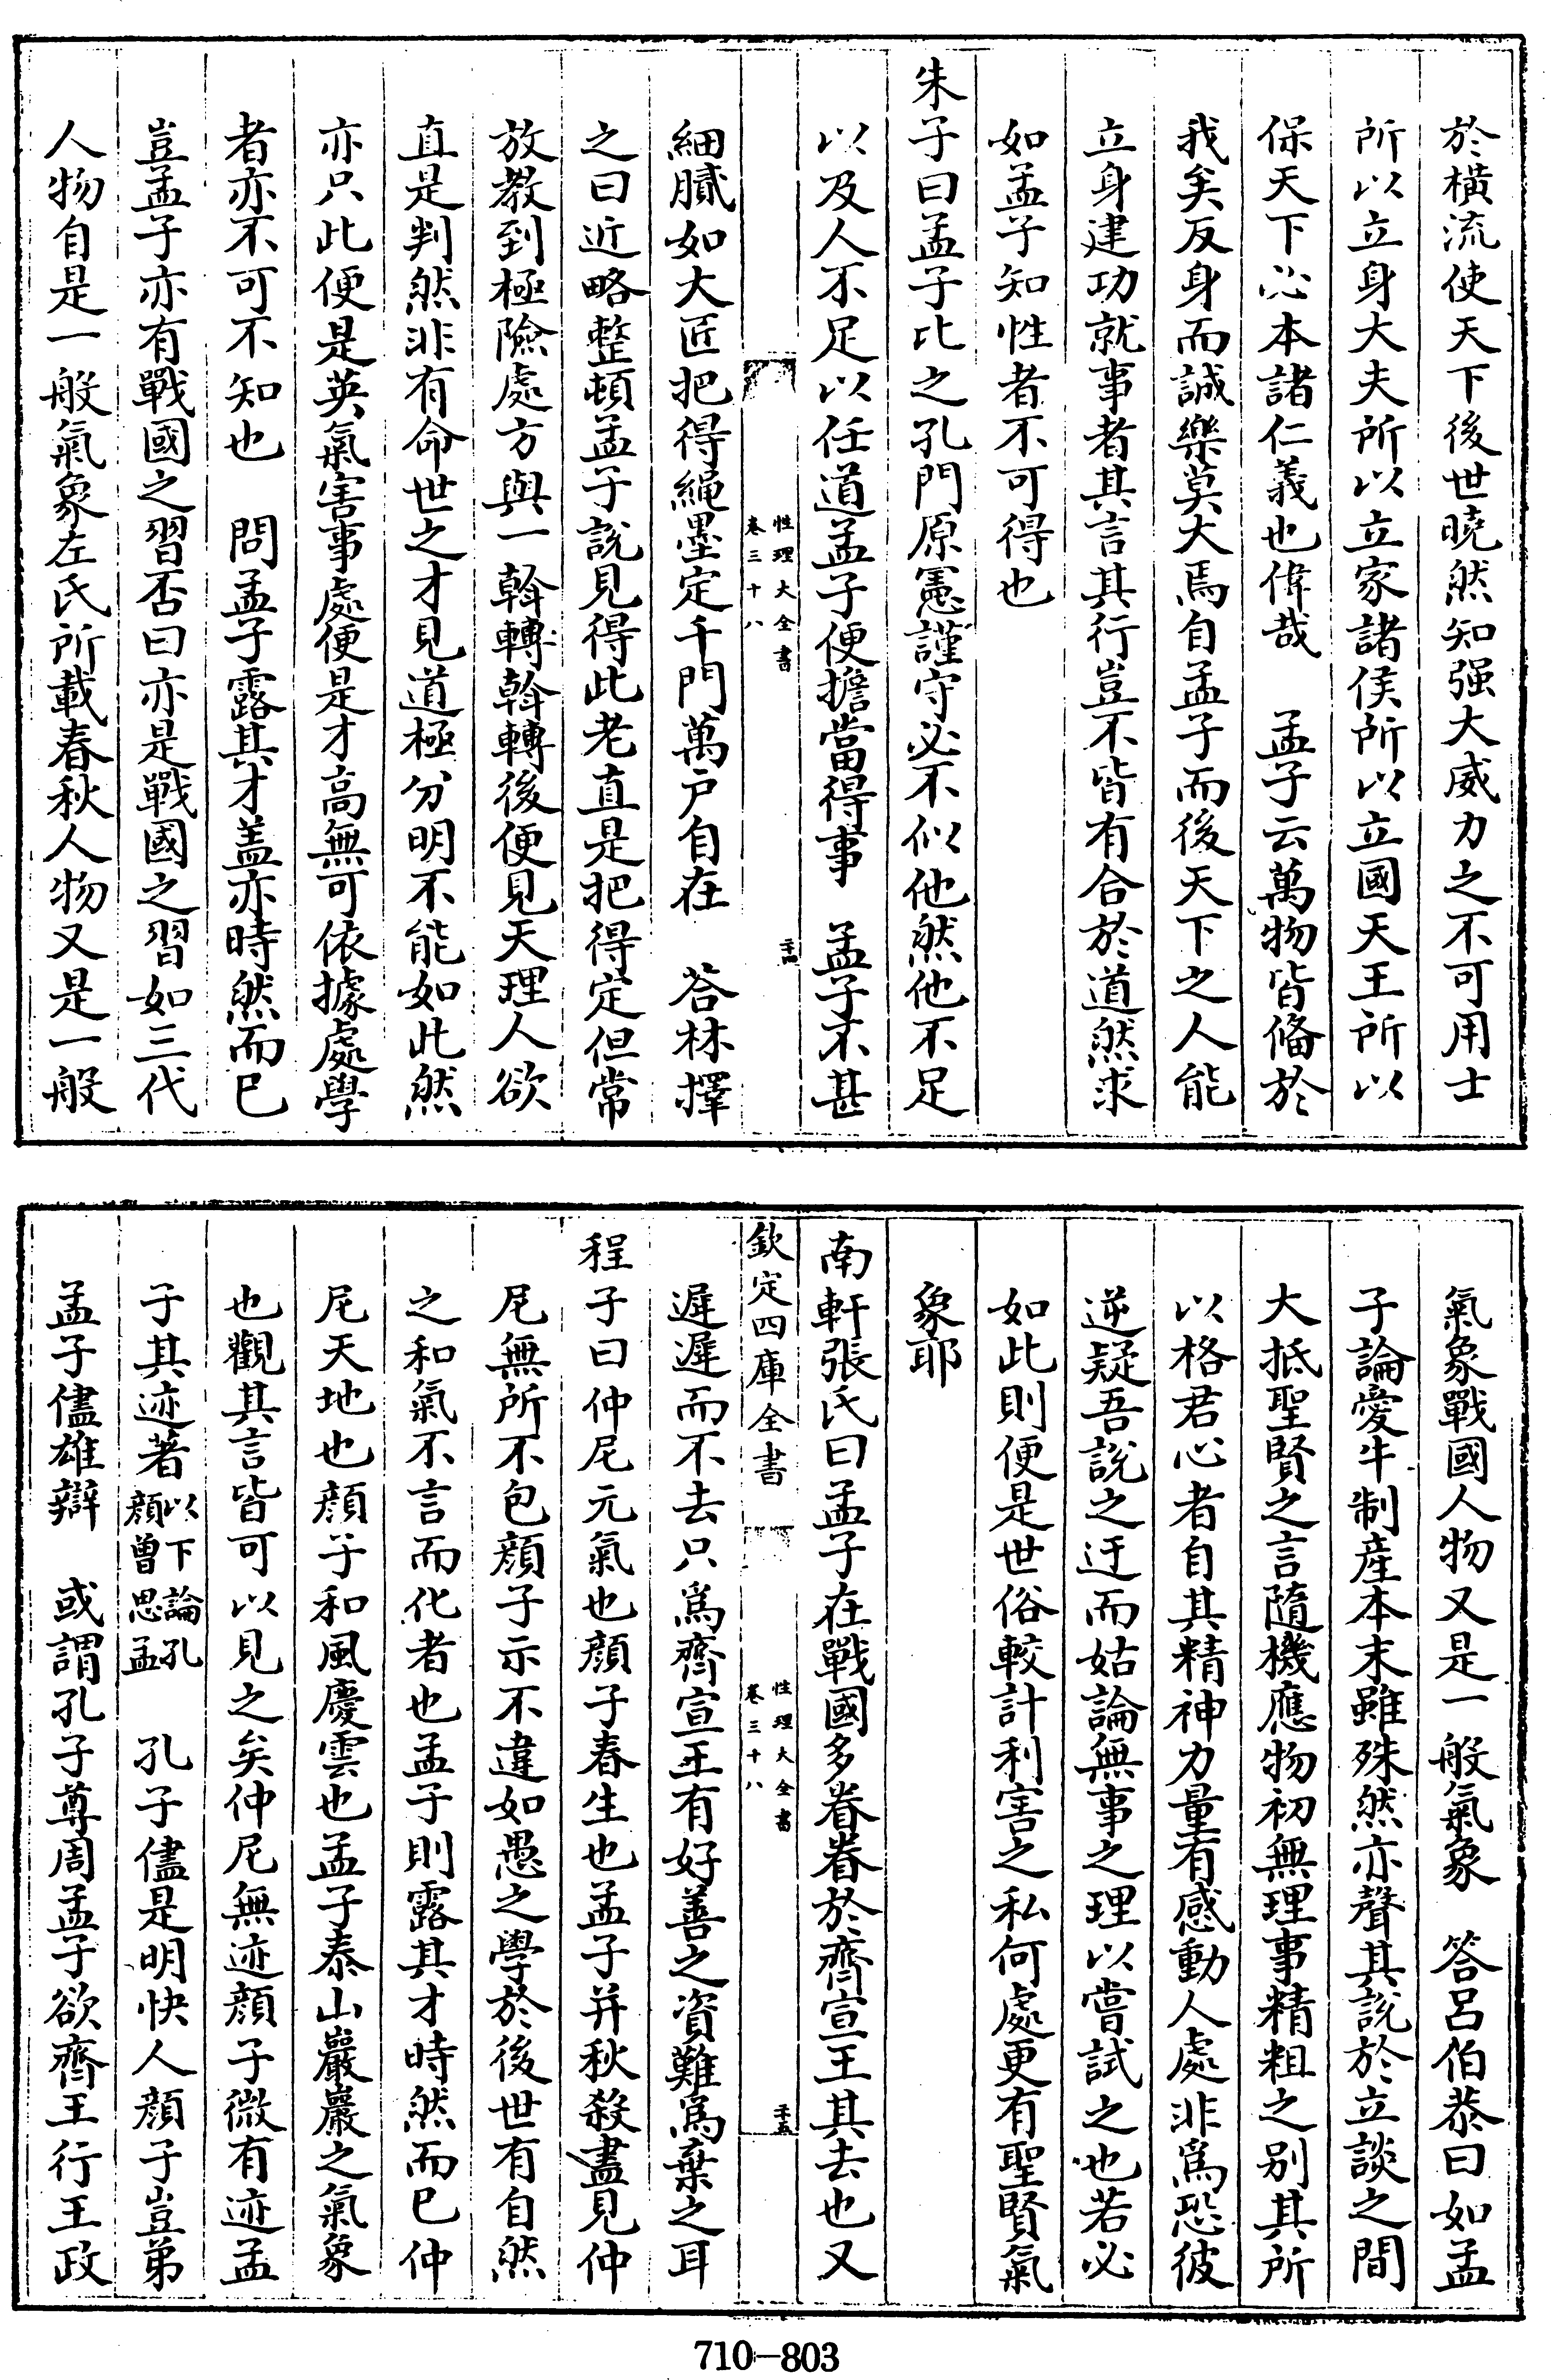 於橫流使天下後世曉然知强大威力之不可用士
所以立身大夫所以立家諸侯所以立國天王所以
保天下必本諸仁義也偉哉　孟子云萬物皆偹於
我矣反身而誠樂莫大焉自孟子而後天下之人能
立身建功就事者其言其行豈不皆有合於道然求
如孟子知性者不可得也
朱子曰孟子比之孔門原憲謹守必不似他然他不足
以及人不足以任道孟子便擔當得事　孟子不甚
性理大全書
卷三十八
二十四
細膩如大匠把得繩墨定千門萬戶自在　荅林擇
之曰近略整頓孟子說見得此老直是把得定但常
放教到極險處方與一斡轉斡轉後便見天理人欲
直是判然非有命世之才見道極分明不能如此然
亦只此便是英氣害事處便是才高無可依據處學
者亦不可不知也　問孟子露其才盖亦時然而已
豈孟子亦有戰國之習否曰亦是戰國之習如三代
人物自是一般氣象左氏所載春秋人物又是一般
氣象戰國人物又是一般氣象　答呂伯恭曰如孟
子論愛牛制産本末雖殊然亦聲其說於立談之間
大抵聖賢之言隨機應物初無理事精粗之别其所
以格君心者自其精神力量有感動人處非爲恐彼
逆疑吾說之迂而姑論無事之理以嘗試之也若必
如此則便是世俗較計利害之私何處更有聖賢氣
象耶
南軒張氏曰孟子在戰國多眷眷於齊宣王其去也又
欽定四庫全書
性理大全書
卷三十八
二十五
遲遲而不去只爲齊宣王有好善之資難爲棄之耳
程子曰仲尼元氣也顔子春生也孟子并秋殺盡見仲
尼無所不包顔子示不違如愚之學於後世有自然
之和氣不言而化者也孟子則露其才時然而已仲
尼天地也顔子和風慶雲也孟子泰山巖巖之氣象
也觀其言皆可以見之矣仲尼無迹顔子微有迹孟
子其迹著以下論孔顔曽思孟　孔子儘是明快人顔子豈弟
孟子儘雄辯　或謂孔子尊周孟子欲齊王行王政
710-803